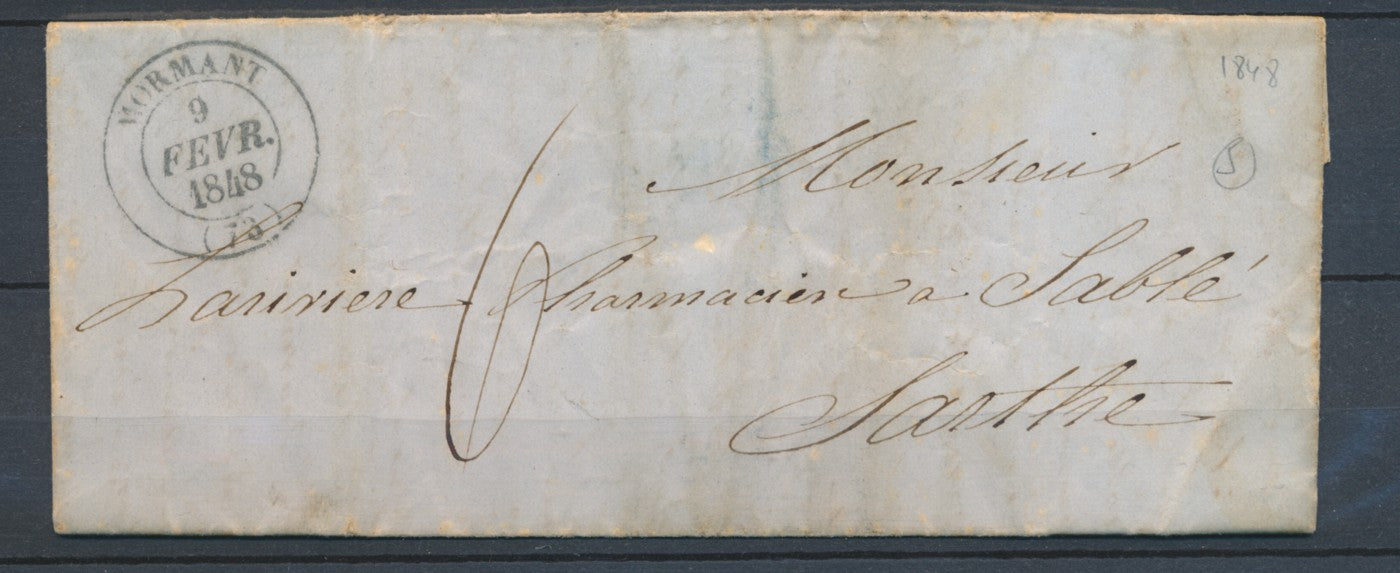 MORMANT
9
FEVR.
1848
(73)
1848
5
6
Monsieur
Lariviere Pharmacien a Sablé
Sarthe